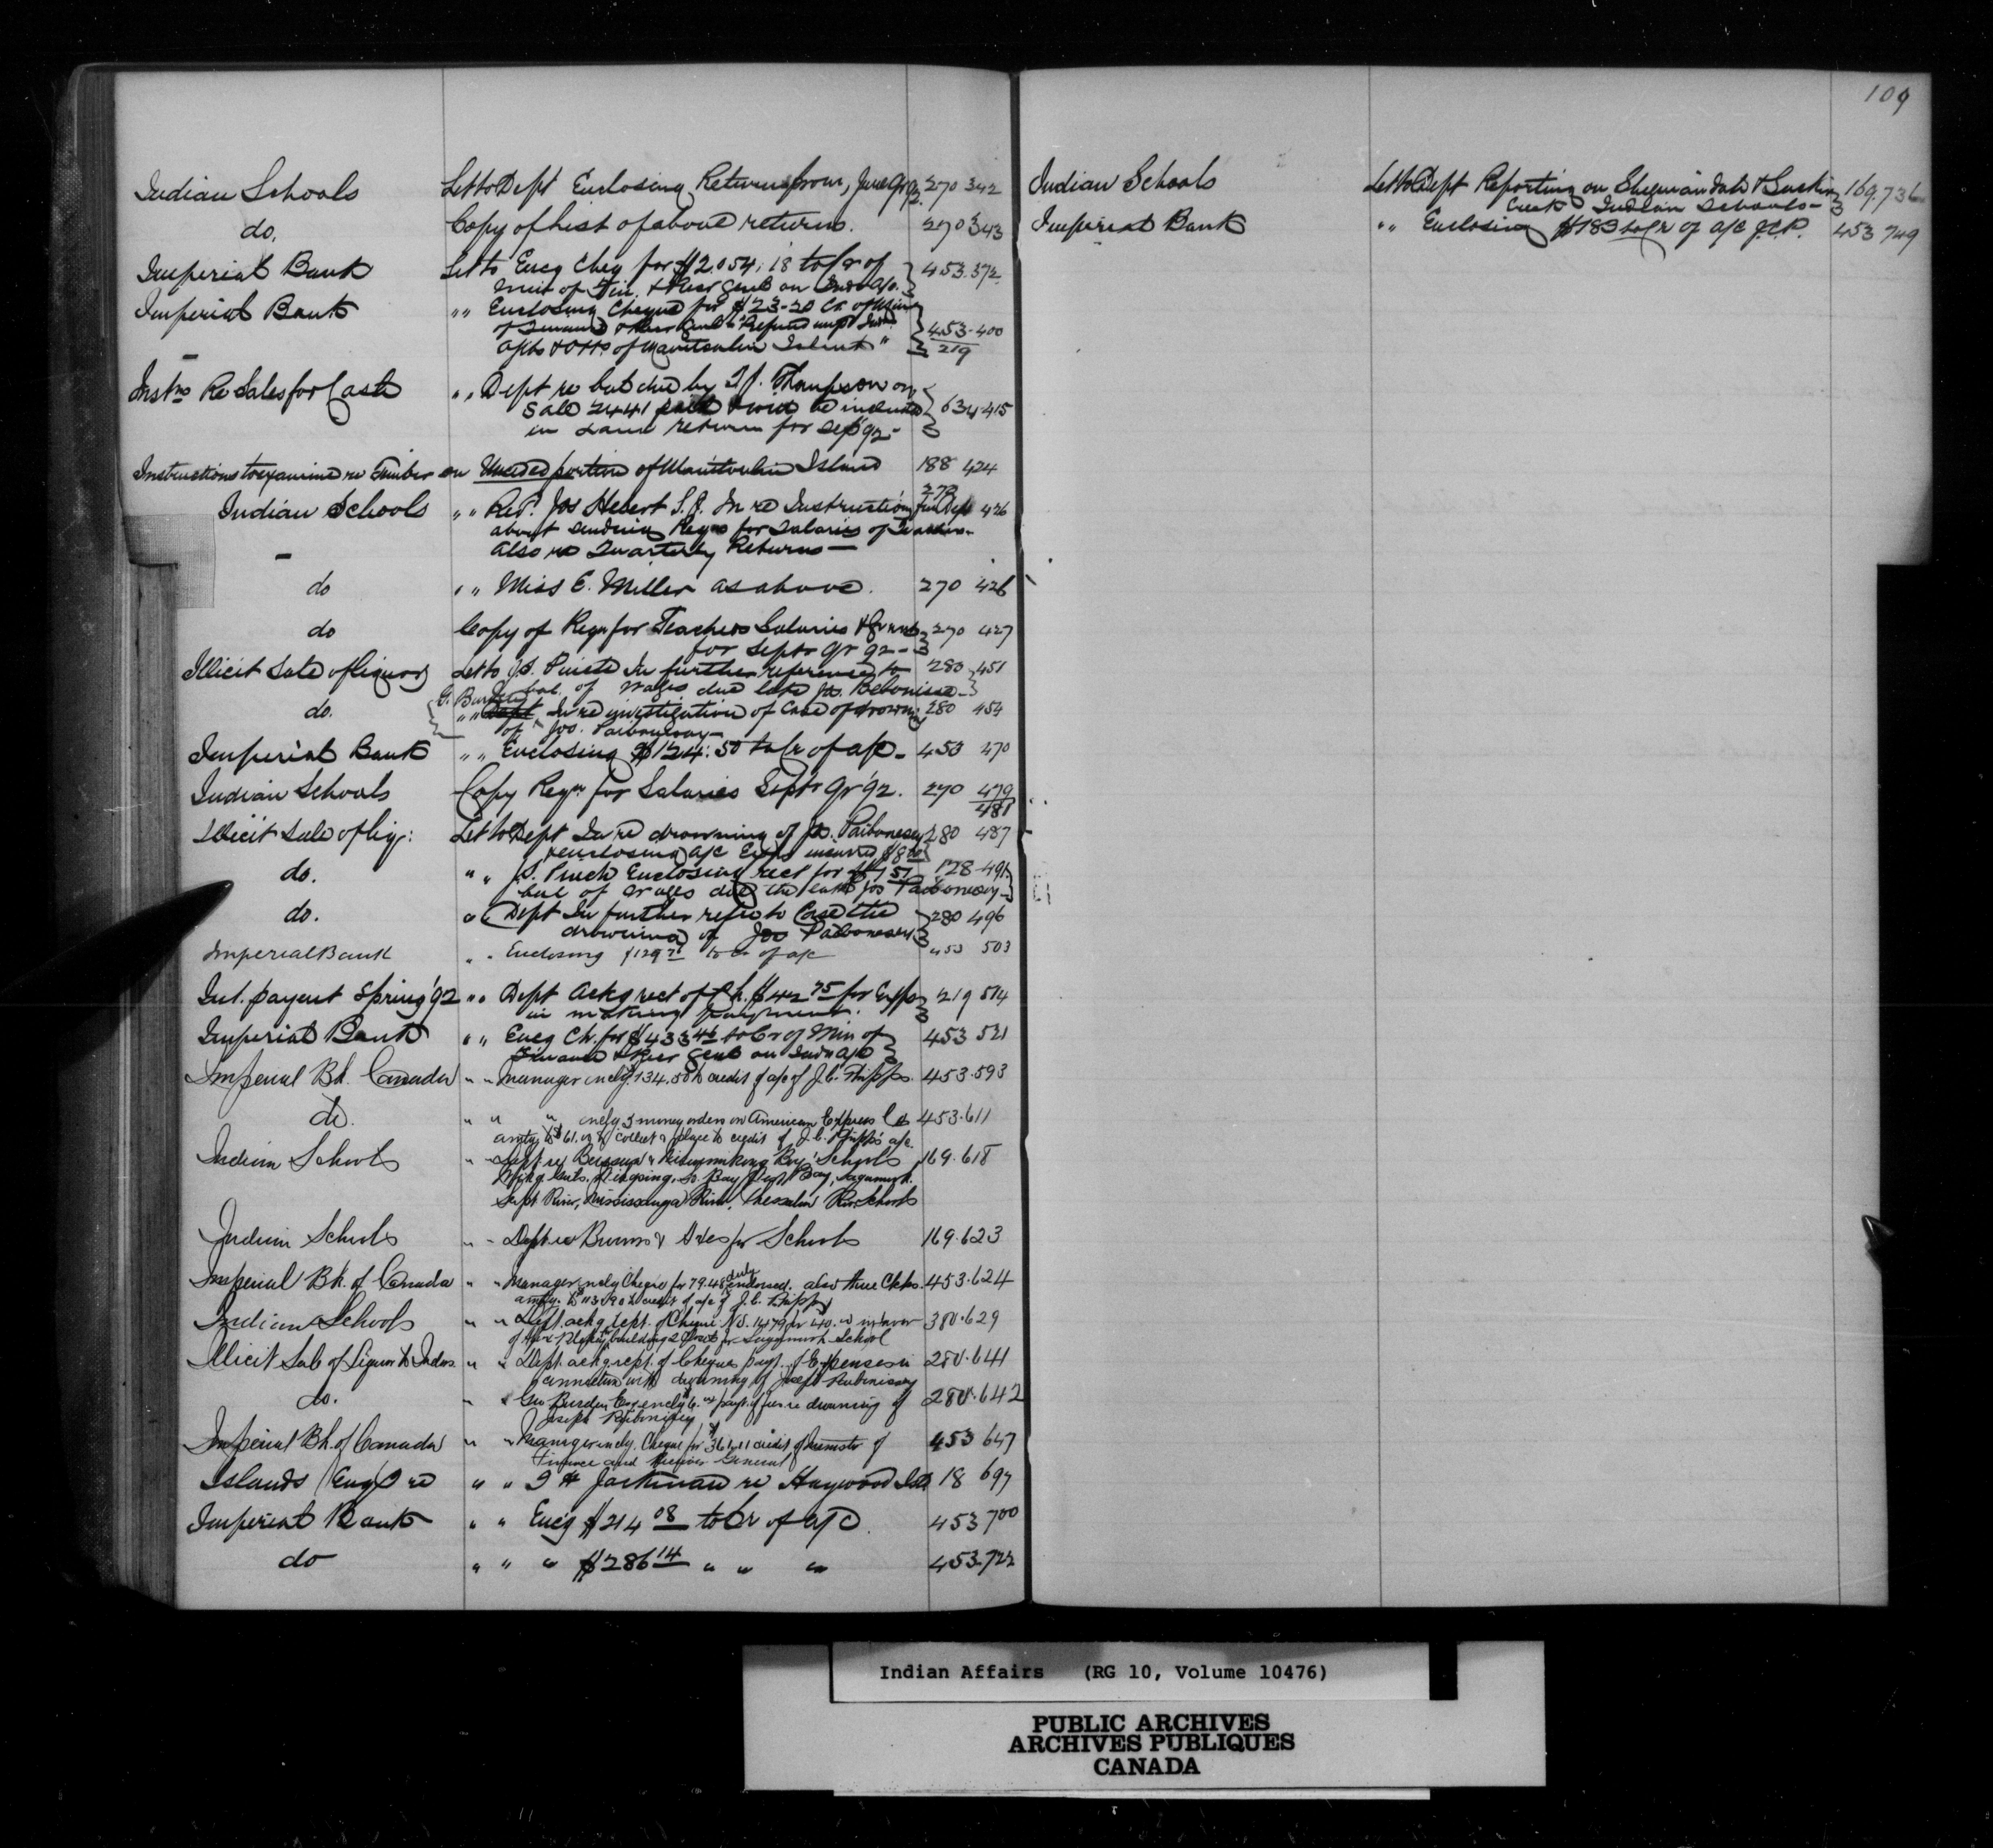 109
Indian Schools Let to Dept Enclosing Returns from, June Qr 92. 270 342
do. Copy of List of above returns. 270 343
Imperial Bank Let to Encg Cheq for $2.054.18 to Cr of 453.372
Min of Fin. & Recr Genl on Indn a/c.
Imperial Bank " " Enclosing Cheque for $23-20 Cr of Min
of Finance & Recr Genl "Refund 453-400
of Manitoulin Island" 219
Instns Re Sales for Cash " " Dept re bal due by T.J. Thompson on
Sale 2441 paid & will be included 634-415
in Land return for Sep 92-
Instructions to examine re Timber on Unceded portion of Manitoulin Island 188 424
Indian Schools " " Revd. Jos Hebert S.J. In re Instructions from Dept 270 426
about sending Reqns for Salaries of Teachers-
also re Quarterly Returns-
do " " Miss E. Miller as above. 270 426
do Copy of Reqn for Teachers Salaries & Grants 270 427
for Septr Qr 92-
Illicit Sale of Liquors Let to J.S. In further reference to 280 451
bal. of wages due late Jos.
do. G. Burden " " In re investigation of Case of drowning 280 454
of Jos. Paibonesay-
Imperial Bank " " Enclosing $124.50 to Cr of a/c- 453 470
Indian Schools Copy Reqn for Salaries Septr Qr 92. 270 479
481
Illicit Sale of Liq: Let to Dept In re drowning of Jos. Paibonesay 280 487
& enclosing a/c Exps incurred
do. " " J.S. Enclosing rect for 178-491
bal of wages due the late Jos Paibonesay-
do. " " Dept In further refce to Case the 280 496
drowning of Jos Paibonesay
Imperial Bank " " Enclosing to Cr of a/c 453 503
Int. payent Spring '92 " " Dept Ackg rect of Ch. $42 75 for Exps 219 514
in making payment.
Imperial Bank " " Encg Ch. for $433 46 to Cr of Min of 453 521
Finance & Recr Genl on Indn a/c
Imperial Bk. Canada " " Manager inclg. 134.50 to credit of a/c of J.C. Phipps. 453.593
do. " " " inclg 3 money orders on American Express Co 453.611
amtg to collect & place to credit of J.C. Phipps a/c.
Indian Schools " " Dept re Schools 169.618
So. Bay, West Bay, Sagamook.
Serpt River, Mississauga River, Thessalon Riv. Schools
Indian Schools " " Dept. re Brooms & Axes for Schools 169.623
Imperial Bk. of Canada " " Manager inclg Cheque for 79.48 duly endorsed. also three Chks. 453.624
amtg. to credit of a/c of J.C. Phipps
Indian Schools " " Dept. ackg rept. of Cheque No. 1479 for 380.629
building School
Illicit Sale of Liquor to Indns. " " Dept. ackg. rept. of Cheques payt. of Expenses in 280.641
connection with drowning of Joseph
do. " " Geo Burden Esq inclg payt. of re drowning of 280.642
Joseph
Imperial Bk. of Canada " " Manager inclg. Cheque for credit of Minister of 453 647
Finance and Receiver General
Islands (Eng) O re " " re Haywood Isld 18 697
Imperial Bank " " Encg $214 08 to Cr of a/c. 453 700
do " " " $286 14 " " " 453.722
Indian Schools Let to Dept Reporting on Shequiandah & Sucker 169.736
Creek Indian Schools-
Imperial Bank " " Enclosing $183 to Cr of a/c J.C.P. 453 749
Indian Affairs (RG 10, Volume 10476)
PUBLIC ARCHIVES
ARCHIVES PUBLIQUES
CANADA